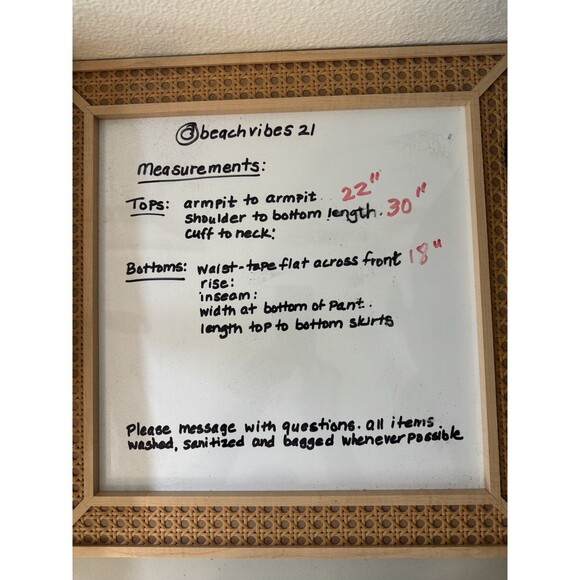 @beachvibes 21
Measurements:
Tops: armpit to armpit. 22"
shoulder to bottom length. 30"
cuff to neck:
Bottoms: waist-tape flat across front 18"
rise:
inseam:
width at bottom of pant.
length top to bottom skirts
Please message with questions. all items
washed, sanitized and bagged whenever possible